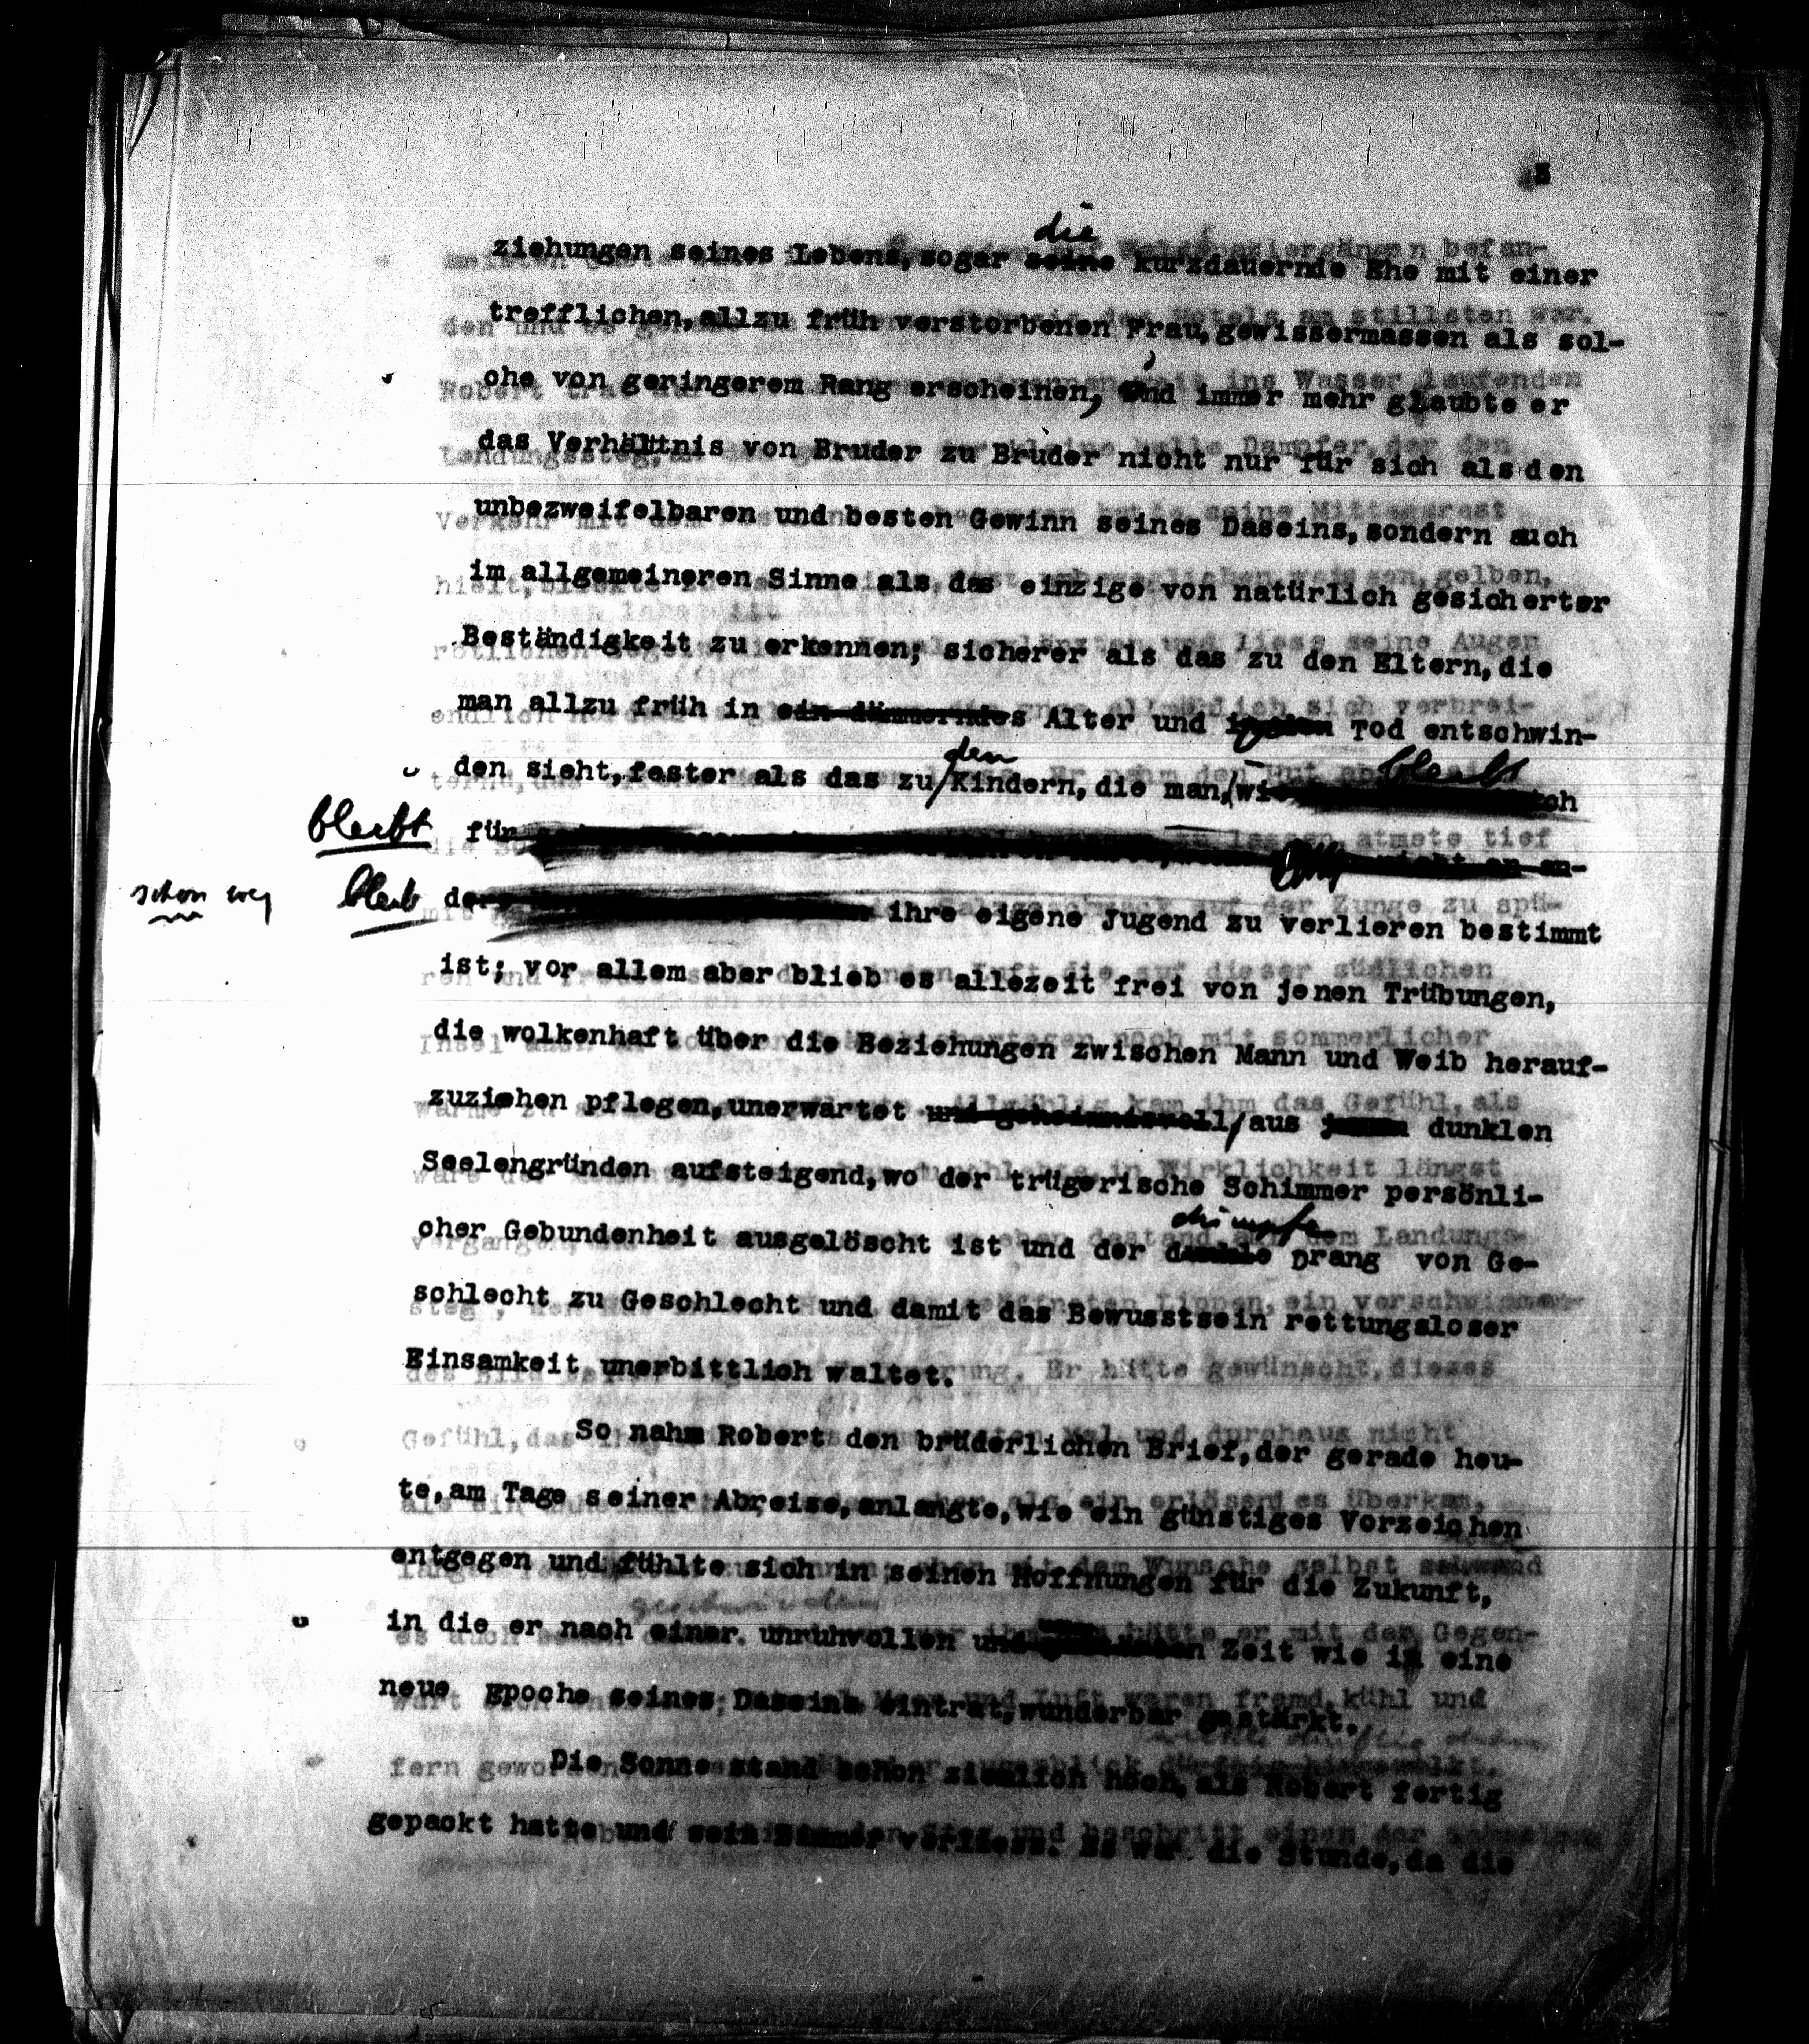 3
die
ziehungen seines Lebens, sogar seine kurzdauernde Ehe mit einer
trefflichen, allzu früh verstorbenen Frau, gewissermassen als sol-
che von geringerem Rang erscheinen, und immer mehr glaubte er
das Verhältnis von Bruder zu Bruder nicht nur für sich als den
unbezweifelbaren und besten Gewinn seines Daseins, sondern auch
im allgemeineren Sinne als das einzige von natürlich gesicherter
Beständigkeit zu erkennen; sicherer als das zu den Eltern, die
man allzu früh in ein dämmerndes Alter und in den Tod entschwin-
den bleibt
den sieht, fester als das zu Kindern, die man, wi ch
bleibt für
schon weg bleib der ihre eigene Jugend zu verlieren bestimmt
ist; vor allem aber blieb es allezeit frei von jenen Trübungen,
die wolkenhaft über die Beziehungen zwischen Mann und Weib herauf-
zuziehen pflegen, unerwartet und geheimnisvoll aus jenen dunklen
Seelengründen aufsteigend, wo der trügerische Schimmer persönli-
dumpfe
cher Gebundenheit ausgelöscht ist und der dunkle Drang von Ge-
schlecht zu Geschlecht und damit das Bewusstsein rettungsloser
Einsamkeit unerbittlich waltet.
So nahm Robert den brüderlichen Brief, der gerade heu-
te, am Tage seiner Abreise, anlangte, wie ein günstiges Vorzeichen
entgegen und fühlte sich in seinen Hoffnungen für die Zukunft,
in die er nach einer unruhvollen und Zeit wie in eine
neue Epoche seines Daseins eintrat, wunderbar gestärkt.
Die Sonne stand schon ziemlich hoch, als Robert fertig
gepackt hatte und sein Zimmer verliess. Es war die Stunde, da die